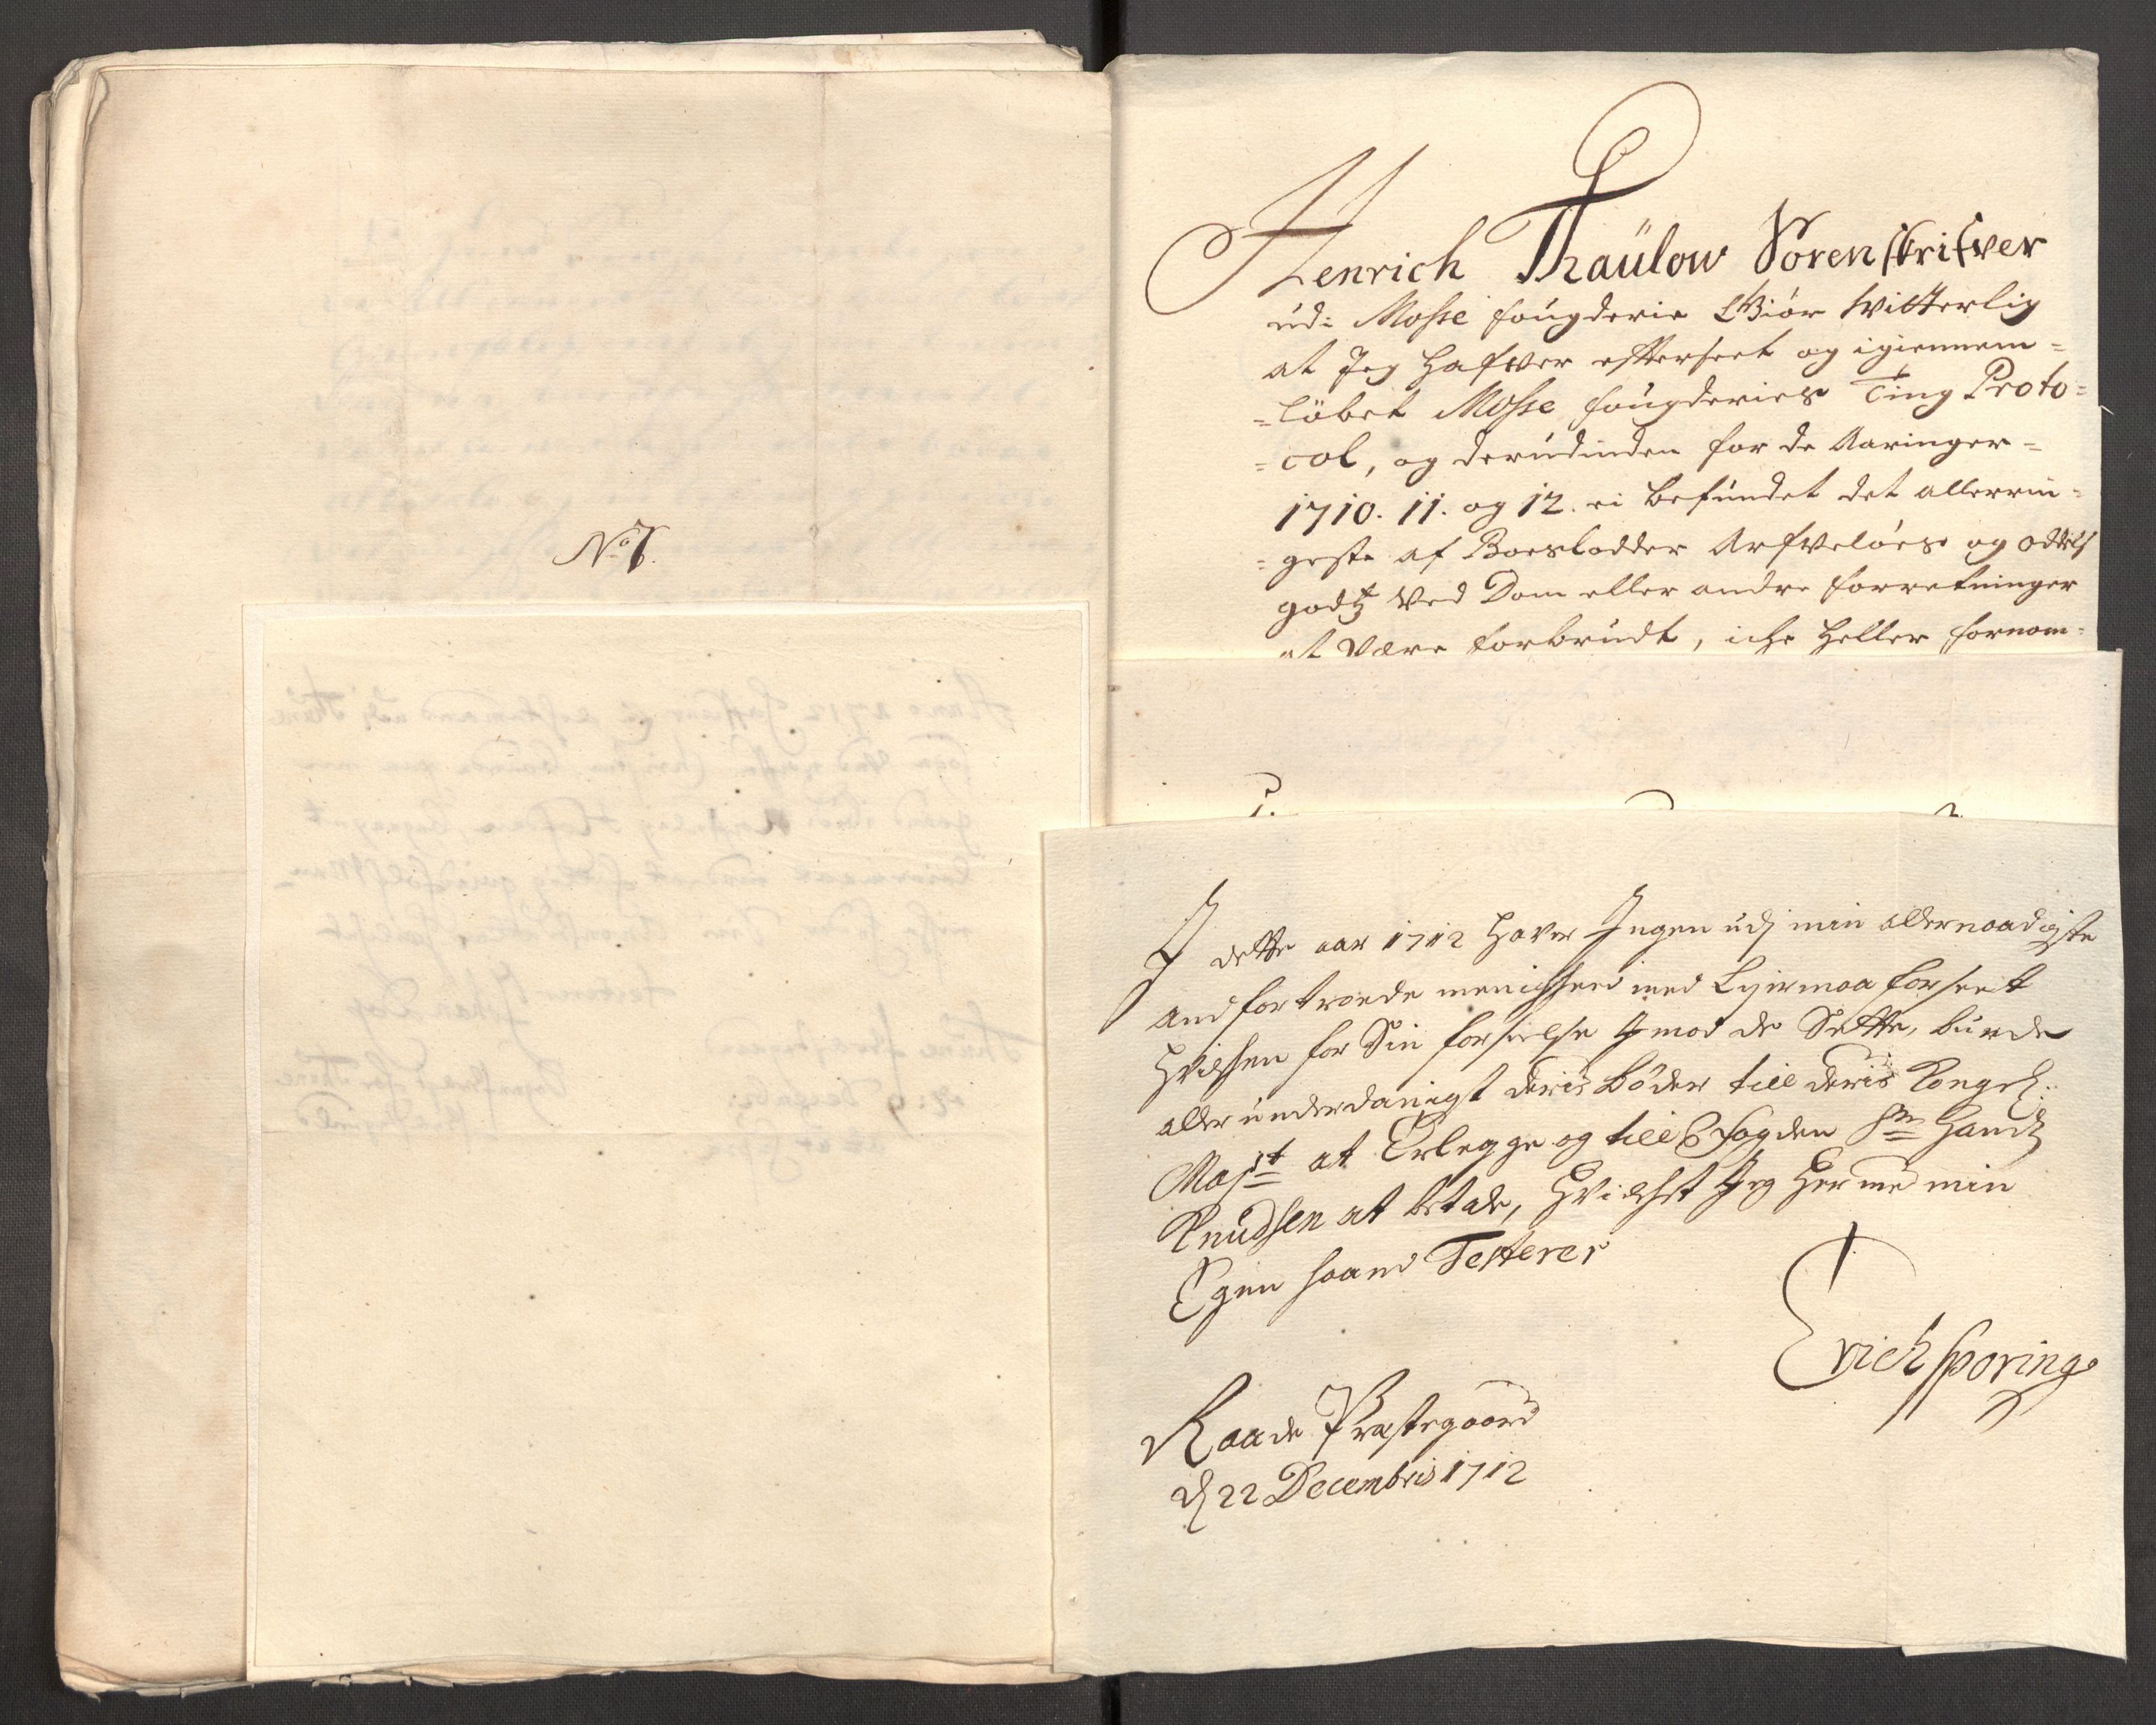 No 7.
Henrich Thaülow Sorenskrifver
üdi Mosse fougderie Giör Witterlig
at Jeg Hafver efterseet og igiennem=
=löbet Mosse fougderies Ting Proto=
=col, og derüdinden for de Aaringer=
1710. 11. og 12. ei befündet det allerrin=
=geste af Boeslodder Arfveløes og oddels
godtz ved Dom eller andre forretninger
at være forbrüdt, iche heller fornom=
I dette aar 1712 Haver Ingen udj min allernaadigste
anfortroede menighed med Leyermaa forseet
Hvilchen for Sin forseelse imod de Sette, burde
alleründerdanigst deris böder till deris Kongel:
Majst at Erlegge og till fogden Sr Handz
Knüdsen at betale, Hvilchet Jeg Hermed min
Egen haand Testerer
Erich Sporing
Raade Præstegaard
d 22 Decembris 1712